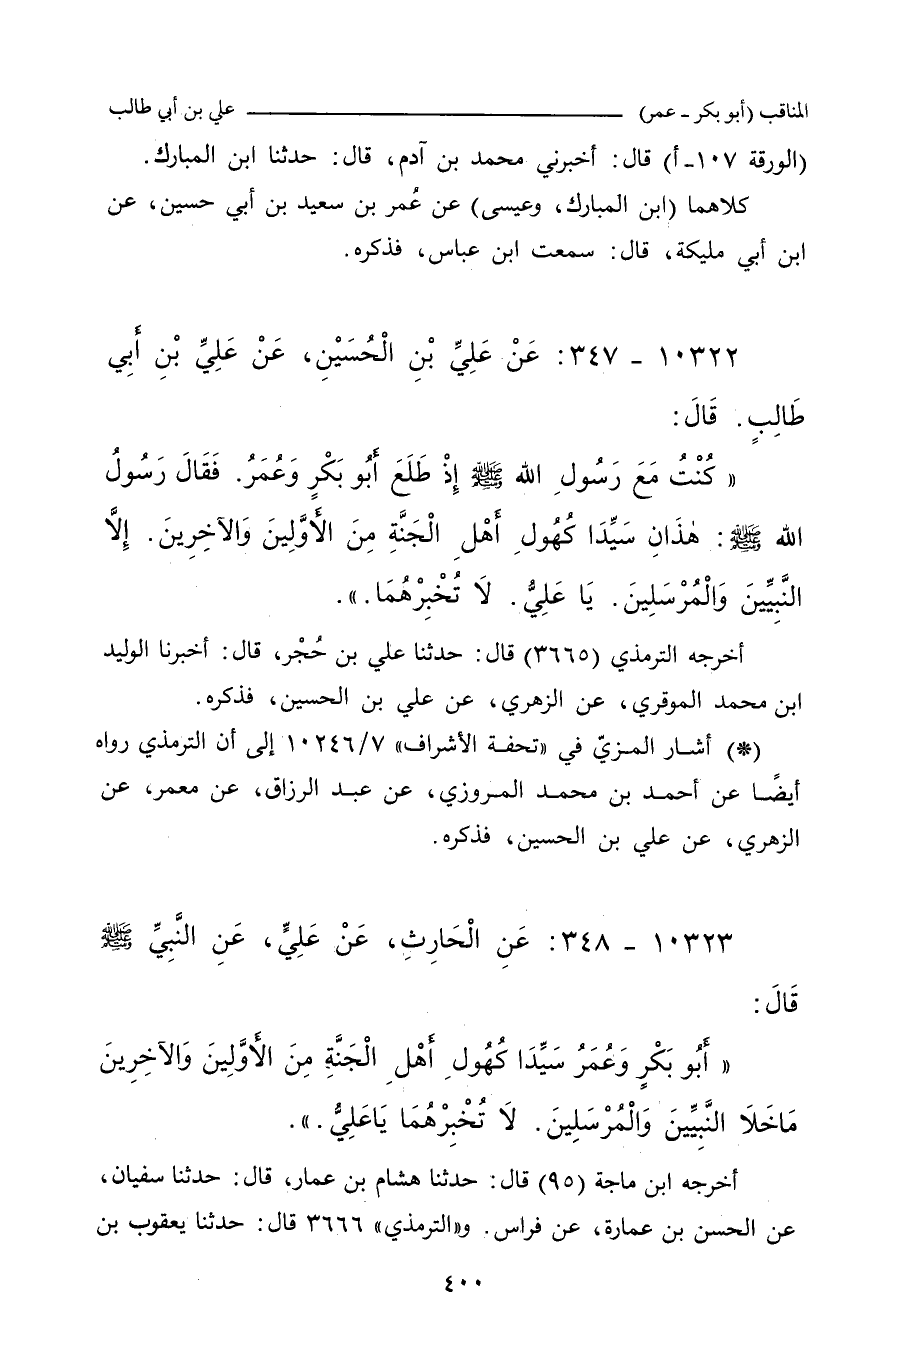 المناقب (أبو بكر - عمر) ــــــــــ علي بن أبي طالب
(الورقة ١٠٧-أ) قال: أخبرني محمد بن آدم، قال: حدثنا ابن المبارك.
كلاهما (ابن المبارك، وعيسى) عن عُمر بن سعيد بن أبي حسين، عن
ابن أبي مليكة، قال: سمعت ابن عباس، فذكره.
١٠٣٢٢ - ٣٤٧: عَنْ عَلِيِّ بْنِ الْحُسَيْنِ، عَنْ عَلِيِّ بْنِ أَبِي
طَالِبٍ. قَالَ:
« كُنْتُ مَعَ رَسُولِ الله ﷺ إِذْ طَلَعَ أَبُو بَكْرٍ وَعُمَرُ. فَقَالَ رَسُولُ
الله ﷺ: هٰذَانِ سَيِّدَا كُهُولِ أَهْلِ الْجَنَّةِ مِنَ الأَوَّلِينَ وَالآخِرِينَ. إِلاَّ
النَّبِيِّينَ وَالْمُرْسَلِينَ. يَا عَلِيُّ. لَا تُخْبِرْهُمَا.».
أخرجه الترمذي (٣٦٦٥) قال: حدثنا علي بن حُجْر، قال: أخبرنا الوليد
ابن محمد الموقري، عن الزهري، عن علي بن الحسين، فذكره.
(*) أشار المزيّ في «تحفة الأشراف» ١٠٢٤٦/٧ إلى أن الترمذي رواه
أيضًا عن أحمد بن محمد المروزي، عن عبد الرزاق، عن معمر، عن
الزهري، عن علي بن الحسين، فذكره.
١٠٣٢٣ - ٣٤٨: عَنِ الْحَارِثِ، عَنْ عَلِيٍّ، عَنِ النَّبِيِّ ﷺ
قَالَ:
« أَبُو بَكْرٍ وَعُمَرُ سَيِّدَا كُهُولِ أَهْلِ الْجَنَّةِ مِنَ الأَوَّلِينَ وَالآخِرِينَ
مَاخَلَا النَّبِيِّينَ وَالْمُرْسَلِينَ. لَا تُخْبِرْهُمَا يَاعَلِيُّ.».
أخرجه ابن ماجة (٩٥) قال: حدثنا هشام بن عمار، قال: حدثنا سفيان،
عن الحسن بن عمارة، عن فراس. و«الترمذي» ٣٦٦٦ قال: حدثنا يعقوب بن
٤٠٠